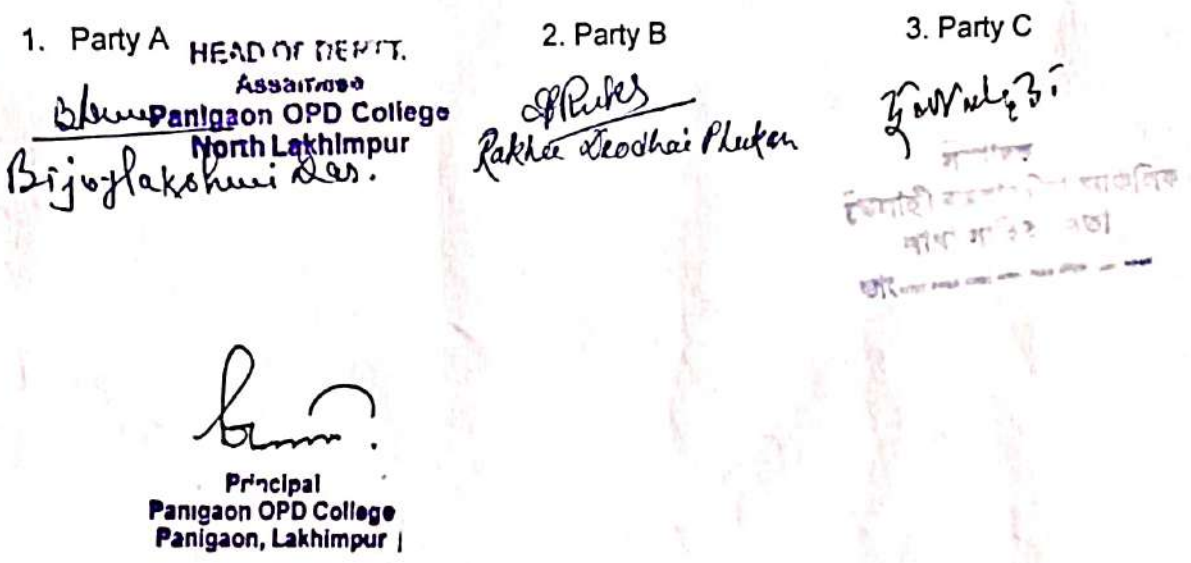 1. Party A
HEAD OF DEPTT.
Assamese
Panigaon OPD College
North Lakhimpur
Bijoylakshmi Das.
2. Party B
Rakhee Deodhai Phukan
3. Party C
সম্পাদক
তাং
Principal
Panigaon OPD College
Panigaon, Lakhimpur